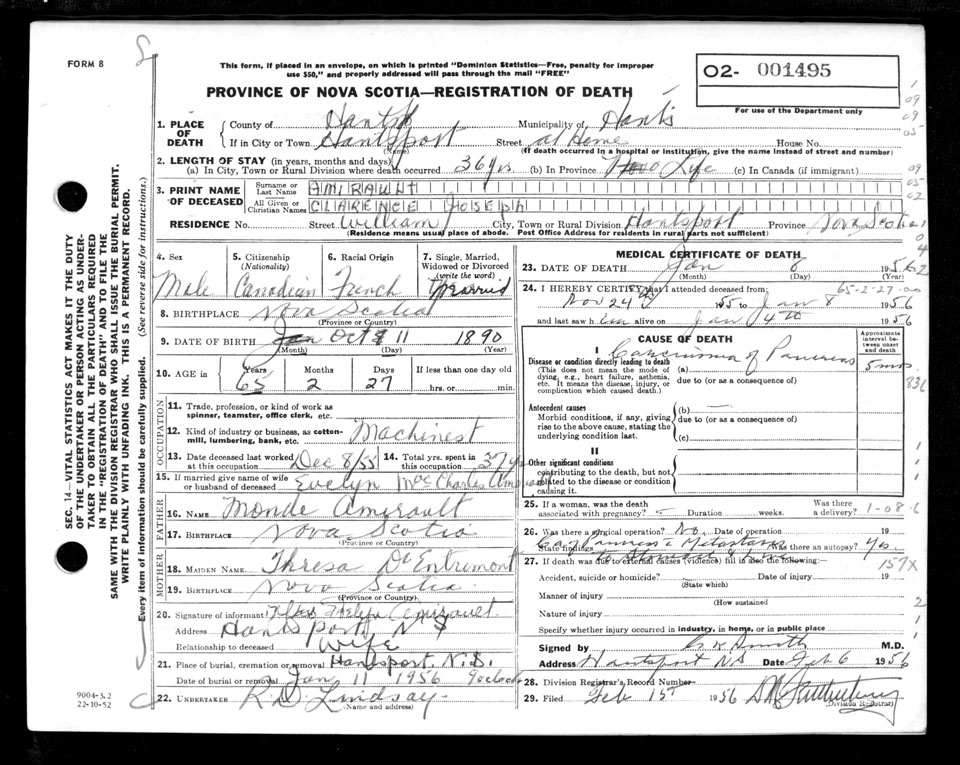 FORM 8
This form, if placed in an envelope, on which is printed "Dominion Statistics—Free, penalty for improper
use $50," and properly addressed will pass through the mail "FREE"
O2- 001495
PROVINCE OF NOVA SCOTIA—REGISTRATION OF DEATH
For use of the Department only
1. PLACE OF DEATH
County of Hants Municipality of Hants
If in City or Town Hantsport Street at Home House No.
(Name) (If death occurred in a hospital or institution, give the name instead of street and number)
2. LENGTH OF STAY (in years, months and days)
(a) In City, Town or Rural Division where death occurred 36 yrs (b) In Province Life (c) In Canada (if immigrant)
3. PRINT NAME OF DECEASED
Surname or Last Name AMIRAULT
All Given or Christian Names CLARENCE JOSEPH
RESIDENCE No. Street William City, Town or Rural Division Hantsport Province Nova Scotia
(Residence means usual place of abode. Post Office Address for residents in rural parts not sufficient)
4. Sex Male
5. Citizenship (Nationality) Canadian
6. Racial Origin French
7. Single, Married, Widowed or Divorced (write the word) Married
8. BIRTHPLACE Nova Scotia
(Province or Country)
9. DATE OF BIRTH Jan Oct 11 1890
(Month) (Day) (Year)
10. AGE in Years 65 Months 2 Days 27 If less than one day old
hrs. or min.
OCCUPATION
11. Trade, profession, or kind of work as
spinner, teamster, office clerk, etc.
12. Kind of industry or business, as cotton-
mill, lumbering, bank, etc. Machinest
13. Date deceased last worked at this occupation Dec 8/55 14. Total yrs. spent in this occupation 37 yrs
15. If married give name of wife
or husband of deceased Evelyn MacCharles Amirault
FATHER
16. NAME Monde Amirault
17. BIRTHPLACE Nova Scotia
(Province or Country)
MOTHER
18. MAIDEN NAME Thresa D'Entremont
19. BIRTHPLACE Nova Scotia
(Province or Country)
20. Signature of informant Mrs Evelyn Amirault
Address Hantsport, N S
Relationship to deceased Wife
21. Place of burial, cremation or removal Hantsport, N.S.
Date of burial or removal Jan 11 1956 9 oclock
22. UNDERTAKER R D Lindsay
(Name and address)
MEDICAL CERTIFICATE OF DEATH
23. DATE OF DEATH Jan 8 1956
(Month) (Day) (Year)
24. I HEREBY CERTIFY that I attended deceased from: 65-2-27-00
Nov 24th 1955 to Jan 8 1956
and last saw him alive on Jan 4th 1956
CAUSE OF DEATH
Approximate interval between onset and death
I
Disease or condition directly leading to death
(This does not mean the mode of
dying, e.g., heart failure, asthenia,
etc. It means the disease, injury, or
complication which caused death.)
(a) Carcinoma of Pancreas 5 mos
due to (or as a consequence of)
Antecedent causes
Morbid conditions, if any, giving
rise to the above cause, stating the
underlying condition last.
(b)
due to (or as a consequence of)
(c)
II
Other significant conditions
contributing to the death, but not
related to the disease or condition
causing it.
25. If a woman, was the death
associated with pregnancy? Duration weeks. Was there a delivery?
26. Was there a surgical operation? No. Date of operation 19
State findings Ca of Pancreas c Metastases Was there an autopsy? Yes
27. If death was due to external causes (violence) fill in also the following:
157X
Accident, suicide or homicide? Date of injury 19
(State which)
Manner of injury
(How sustained)
Nature of injury
Specify whether injury occurred in industry, in home, or in public place
Signed by G K Smith M.D.
Address Hantsport NS Date Feb 6 1956
28. Division Registrar's Record Number
29. Filed Feb 15th 1956
(Division Registrar)
SEC. 14—VITAL STATISTICS ACT MAKES IT THE DUTY
OF THE UNDERTAKER OR PERSON ACTING AS UNDER-
TAKER TO OBTAIN ALL THE PARTICULARS REQUIRED
IN THE "REGISTRATION OF DEATH" AND TO FILE THE
SAME WITH THE DIVISION REGISTRAR WHO SHALL ISSUE THE BURIAL PERMIT.
WRITE PLAINLY WITH UNFADING INK. THIS IS A PERMANENT RECORD.
Every item of information should be carefully supplied. (See reverse side for instructions.)
9004-3.2
22-10-52